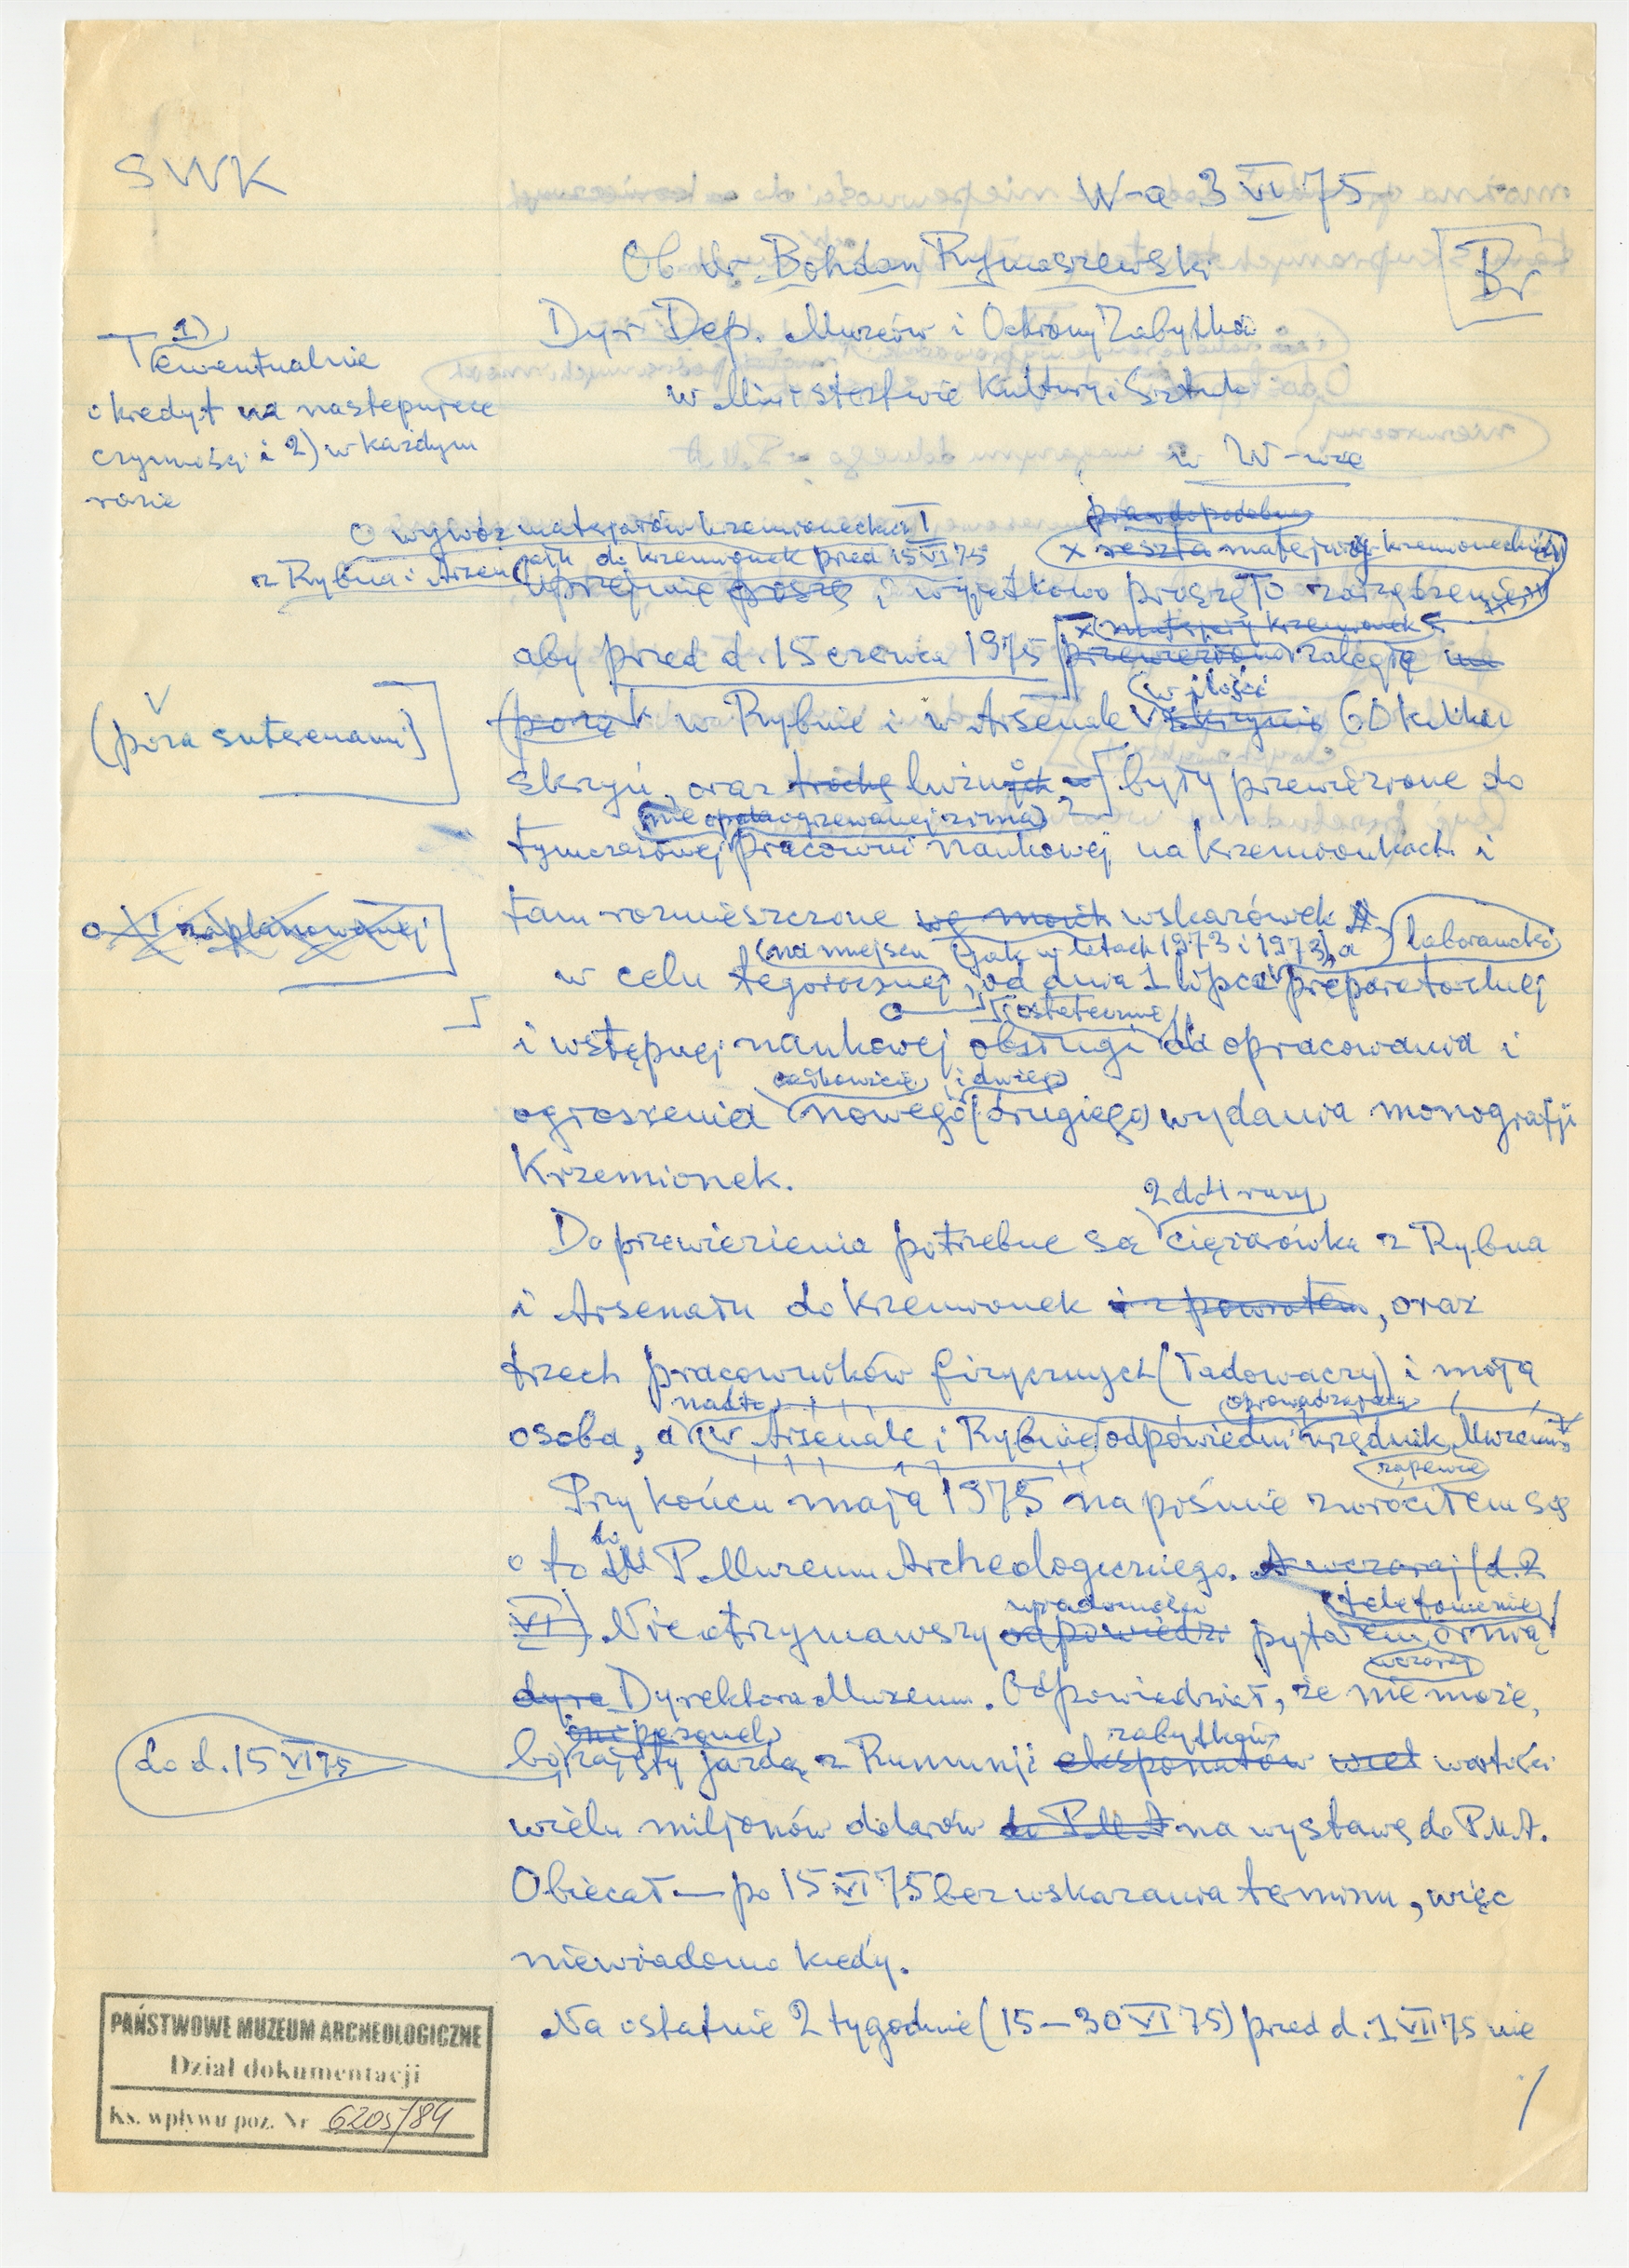 SWK
W-a 3 VI 75
Ob. Dr. Bohdan Rymaszewski
Br
Dyr Dep. Muzeów i Ochrony Zabytków
w Ministerstwie Kultury i Sztuki
w W-wie
1)
ewentualnie
o kredyt na następujące
czynności i 2) w każdym
razie
o wywóz materjałów krzemioneckich
z Rybna i Arsenału do Krzemionek przed 15 VI 75
prawdopodobny
x reszta materjałów krzemioneckich
Uprzejmie proszę i wyjątkowo proszę o zarządzenie,
x materjały krzemionek
aby przed d. 15 czerwca 1975 przewieziono zaległe na
w ilości
(poza suterenami)
w Rybnie i w Arsenale skrzyń 60 kilku
skrzyń, oraz trochę luźnych były przewiezione do
nie opala ogrzewanej zimą
tymczasowej pracowni naukowej na Krzemionkach i
o zaplanowanej
tam rozmieszczone wg moich wskazówek
(na miejscu (jak w latach 1973 i 1973), a laboranckiej
w celu tegorocznej, od dnia 1 lipca preparatorskiej
ostatecznie
i wstępnej naukowej obsługi do opracowania i
całkowicie i dużego
ogłoszenia nowego (drugiego) wydania monografji
Krzemionek.
2 do 4 razy
Do przewiezienia potrzebne są ciężarówka z Rybna
i Arsenału do Krzemionek i z powrotem, oraz
trzech pracowników fizycznych (ładowaczy) i moja
nadto oprowadzający
osoba, a w Arsenale i Rybnie odpowiedni urzędnik Muzeum
zapewne
Przy końcu maja 1975 na piśmie zwróciłem się
do
o to P. Muzeum Archeologicznego. A wczoraj (d. 2
wiadomości telefonicznie
VI) Nie otrzymawszy odpowiedzi pytałem o nią
wczoraj
dyre Dyrektora Muzeum. Odpowiedział, że nie może,
personel zabytków
do d. 15 VI 75
bo zajęty jazdą z Rumunji eksponatów wartości
wielu miljonów dolarów do P.M.A na wystawę do P.M.A.
Obiecał — po 15 VI 75 bez wskazania terminu, więc
niewiadomo kiedy.
Na ostatnie 2 tygodnie (15 – 30 VI 75) przed d. 1 VII 75 nie
PAŃSTWOWE MUZEUM ARCHEOLOGICZNE
Dział dokumentacji
Ks. wpływu poz. Nr 6205/84